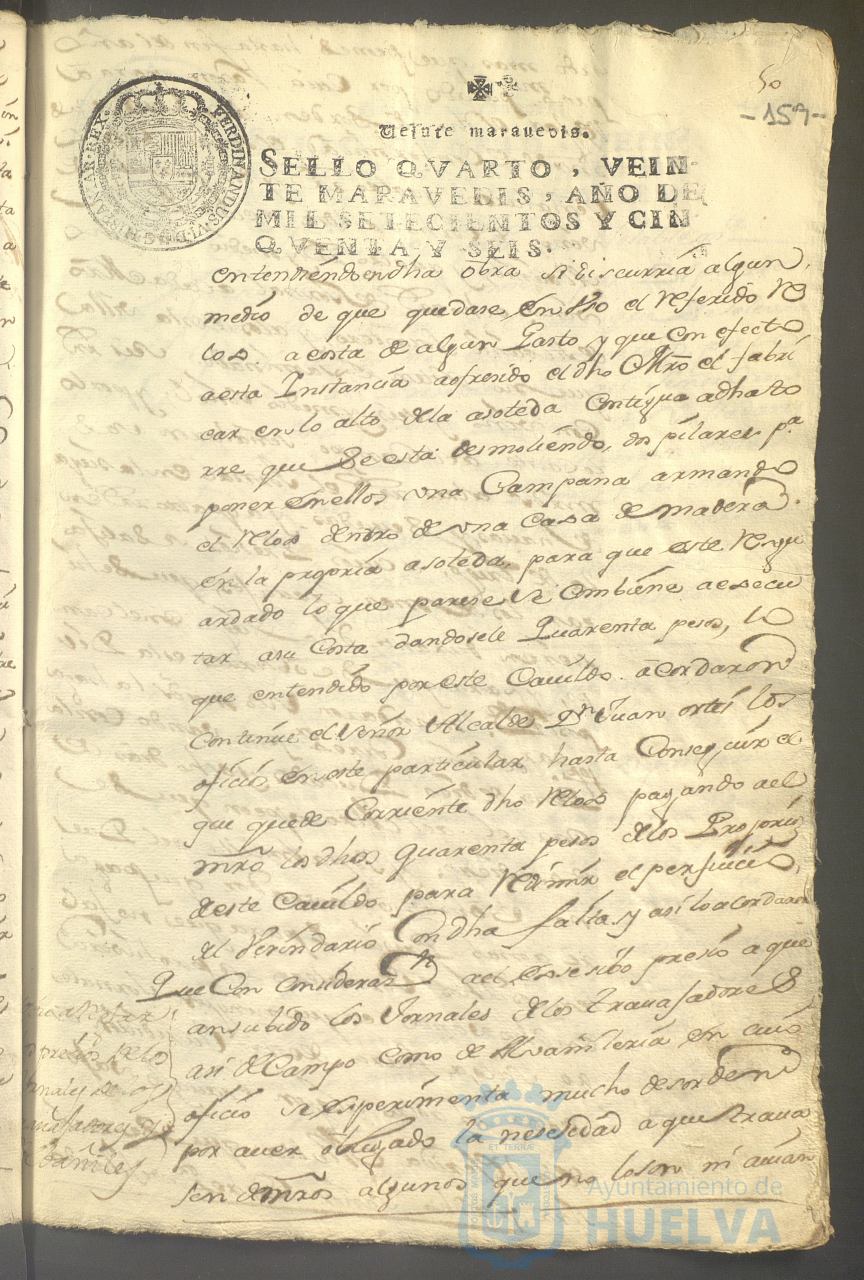 50
-159-
FERDINANDUS·VI·D·G·HISPANIAR·REX·
Veinte maravedis.
SELLO QVARTO, VEIN-
TE MARAVEDIS, AÑO DE
MIL SETECIENTOS Y CIN
QVENTA Y SEIS.
entendiendo en dha obra si discurria algun
medio de que quedase en Uso el referido Re
lox a costa de algun Gasto y que con efecto
a esta Instancia a ofresido el dho Mro el fabri
car en lo alto de la asoteda contigua a dha to
rre que se esta desmoliendo, dos pilares pa
poner en ellos una Campana armando
el Relox dentro de una Casa de madera
en la propria asoteda, para que este resgu
ardado lo que parese se combiene a esecu
tar a su Costa dandosele Quarenta pesos, lo
que entendido por este Cavildo acordaron
continue el señor Alcalde Dn Juan ortis los
oficios en este particular hasta Conseguir el
que quede Corriente dho Relox pagando a el
mro los dhos quarenta pesos de los Proprios
de este Cavildo para redimir el perjuicio
del Verindario Con dha falta y asi lo acordaron
Que Con Consideraz.n a el exsesibo presio a que
an subido los Jornales de los travajadores
asi de Campo como de Alvañileria en cuio
oficio se experimenta mucho desorden
por aver obligado la nesesidad a que trava
jen de mros algunos que no lo son ni avian
presios de los
Jornales de los
Ayuntamiento de
HUELVA